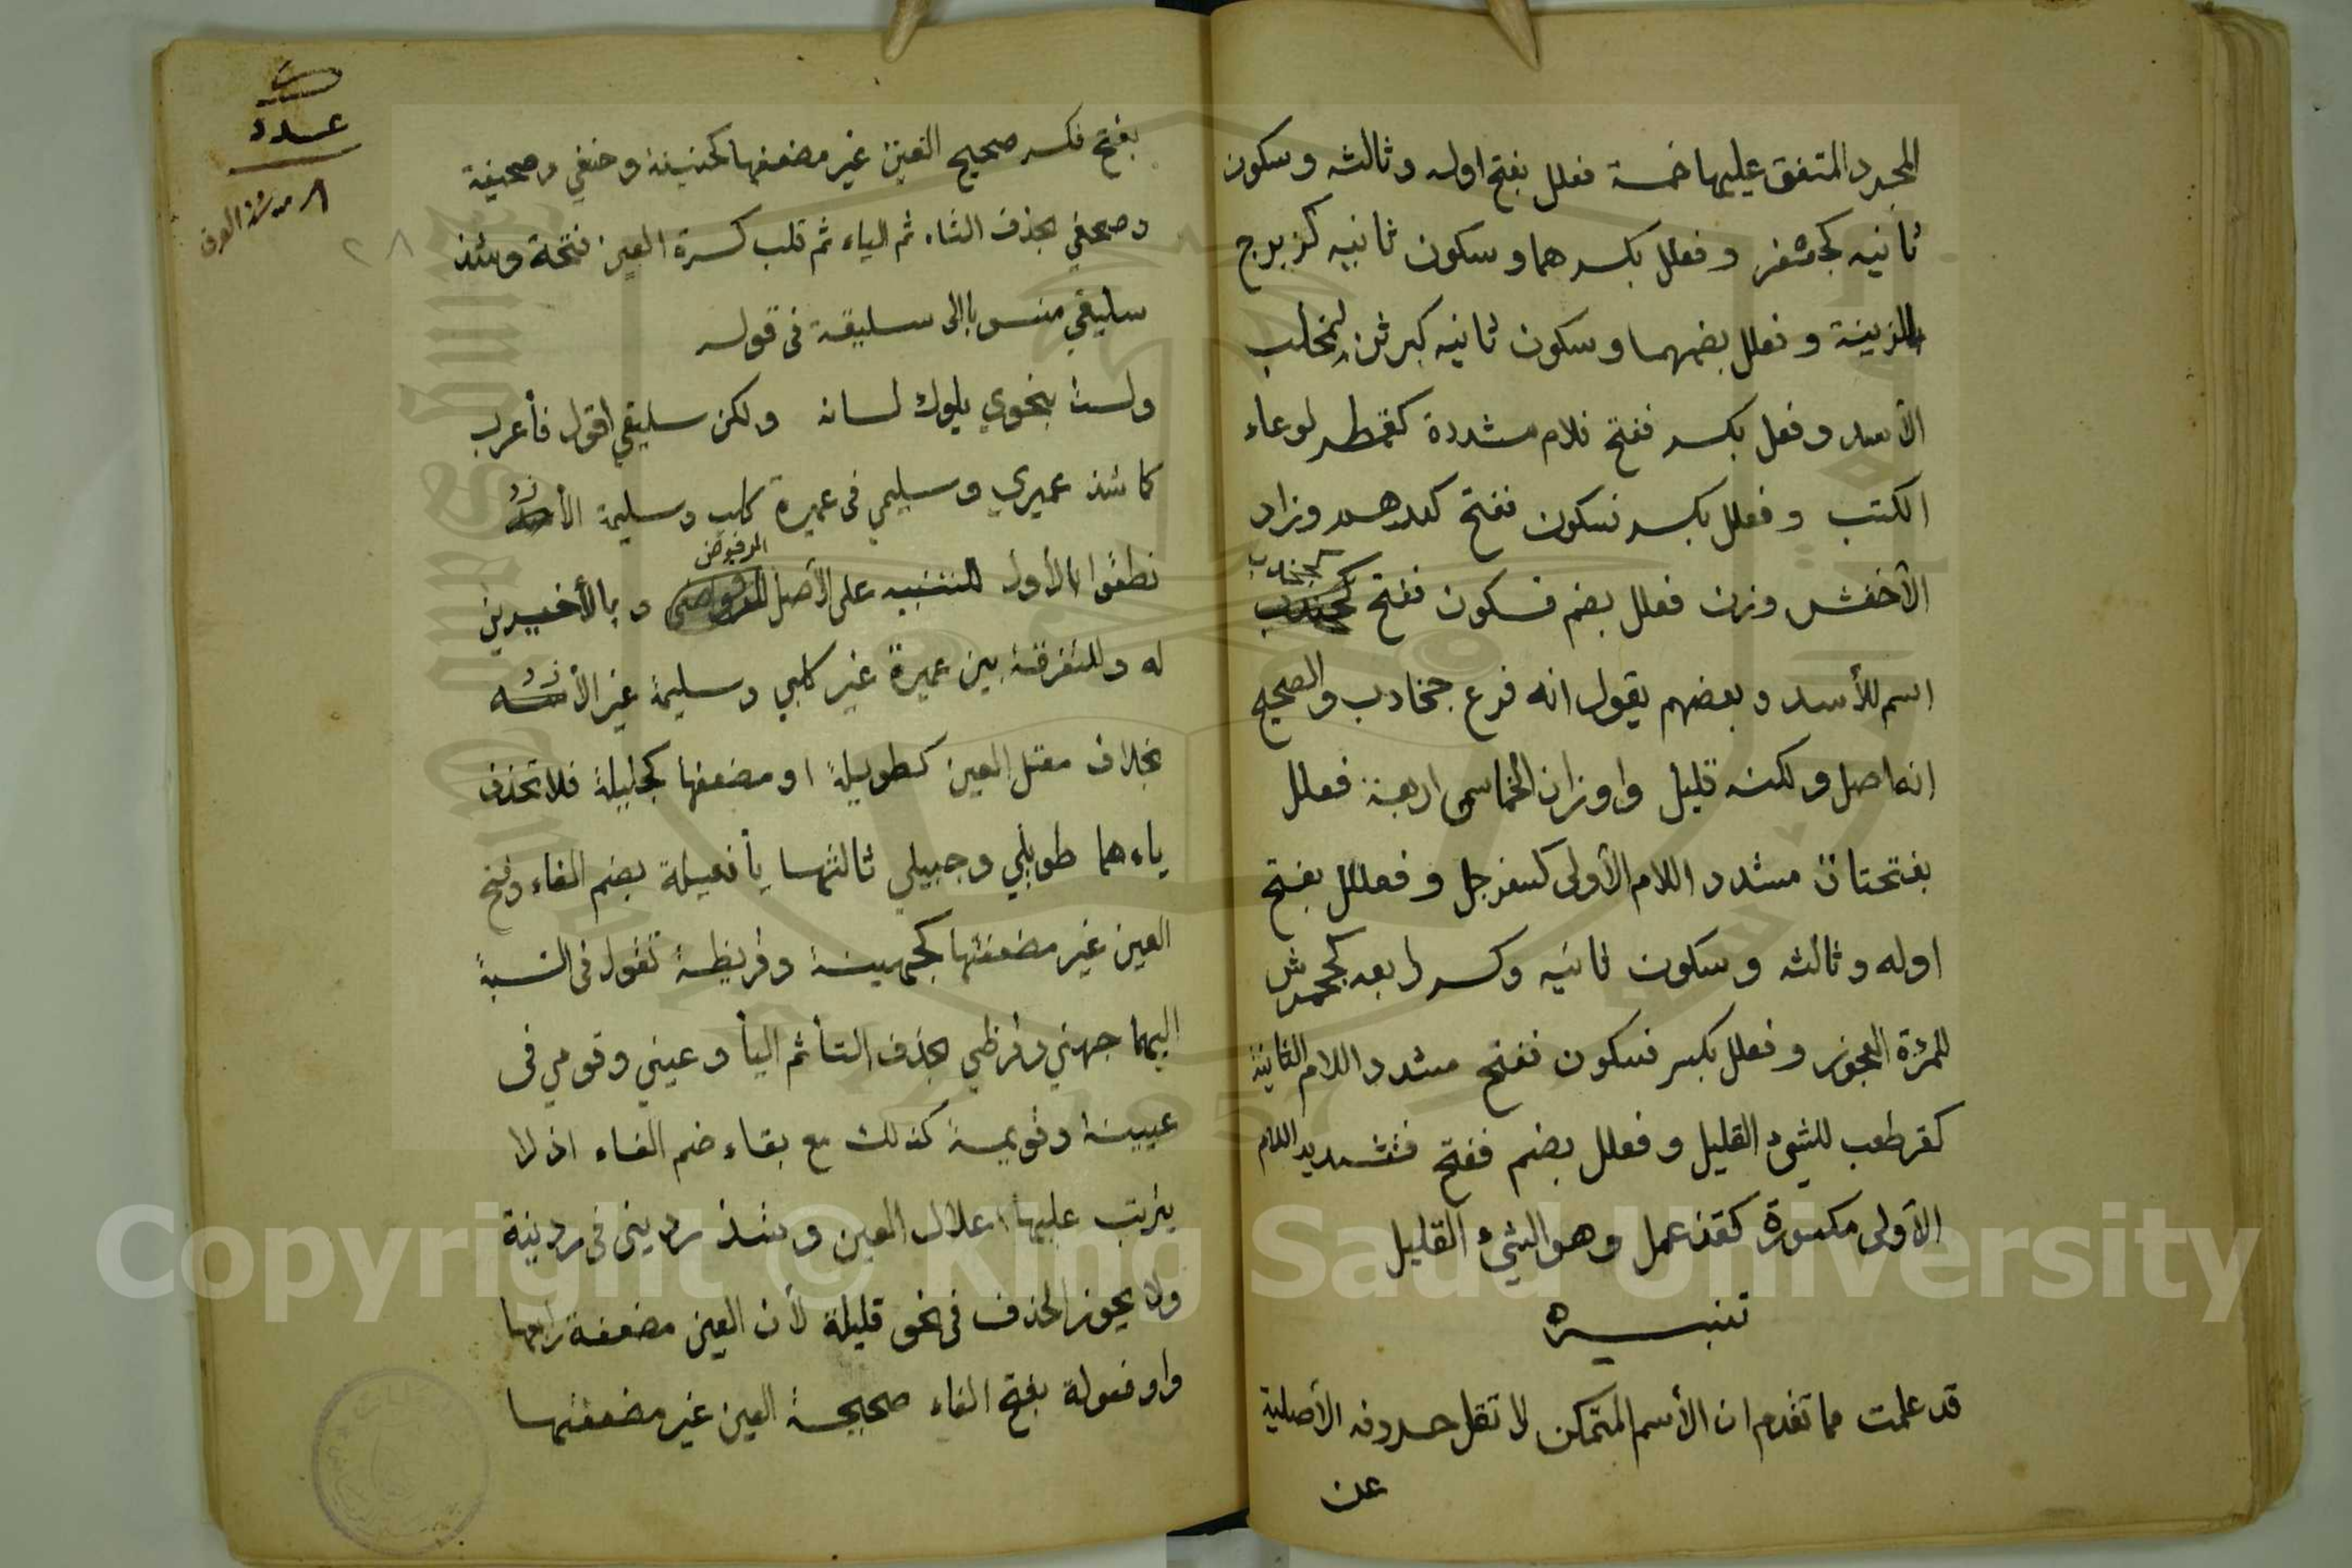 المجرد المتفق عليها خمسة فعلل بفتح اوله وثالثه وسكون
ثانيه كجعفر وفعلل بكسرهما وسكون ثانيه كزبرج
للزينة وفعلل بضمهما وسكون ثانيه كبرثن لمخلب
الأسد وفعل بكسر ففتح فلام مشددة كقمطر لوعاء
الكتب وفعلل بكسر فسكون ففتح كدرهم وزاد
الأخفش وزن فعلل بضم فسكون ففتح كجخدب
اسم للأسد وبعضهم يقول انه فرع جخادب والصحيح
انه اصل ولكنه قليل واوزان الخماسي اربعة فعلل
بفتحتان مشدد اللام الأولى كسفرجل وفعلل بفتح
اوله وثالثه وسكون ثانيه وكسر رابعه كجحمرش
للمرٔة العجوز وفعلل بكسر فسكون ففتح مشدد اللام الثانية
كقرطعب للشيء القليل وفعلل بضم ففتح فتشديد اللام
الأولى مكسورة كقذعمل وهو الشيء القليل
تنبيه
قد علمت مما تقدم ان الأسم المتمكن لا تقل حروفه الأصلية
عن
عدد
٢٨
بفتح فكسر صحيح العين غير مضعفها كحنيفة وحنفي وصحيفة
وصحفي بحذف التاء ثم الياء ثم قلب كسرة العين فتحة وشذ
سليقي منسوبا الى سليقة في قوله
ولست بنحوي يلوك لسانه ولكن سليقي اقول فأعرب
كما شذ عميري وسليمي في عميرة كلب وسليمة الأزد
نطقوا بالأول للتنبيه على الأصل المرفوض وبالأخيرين
له وللتفرقة بين عميرة غير كلبي وسليمة غير الأزد
بخلاف معتل العين كطويلة او مضعفها كجليلة فلا تحذف
ياءهما طويلي وجليلي ثالثها يأ فعيلة بضم الفاء وفتح
العين غير مضعفتها كجهينة وقريظة تقول في النسبة
اليهما جهني وقرظي بحذف التأ ثم اليأ وعيني وقومي في
عيينة وقويمة كذلك مع بقاء ضم الفاء اذ لا
يترتب عليها اعلال العين وشذ رديني في ردينة
ولا يجوز الحذف في نحو قليلة لأن العين مضعفة رابعها
واو فعولة بفتح الفاء صحيحة العين غير مضعفتها
Copyright © King Saud University